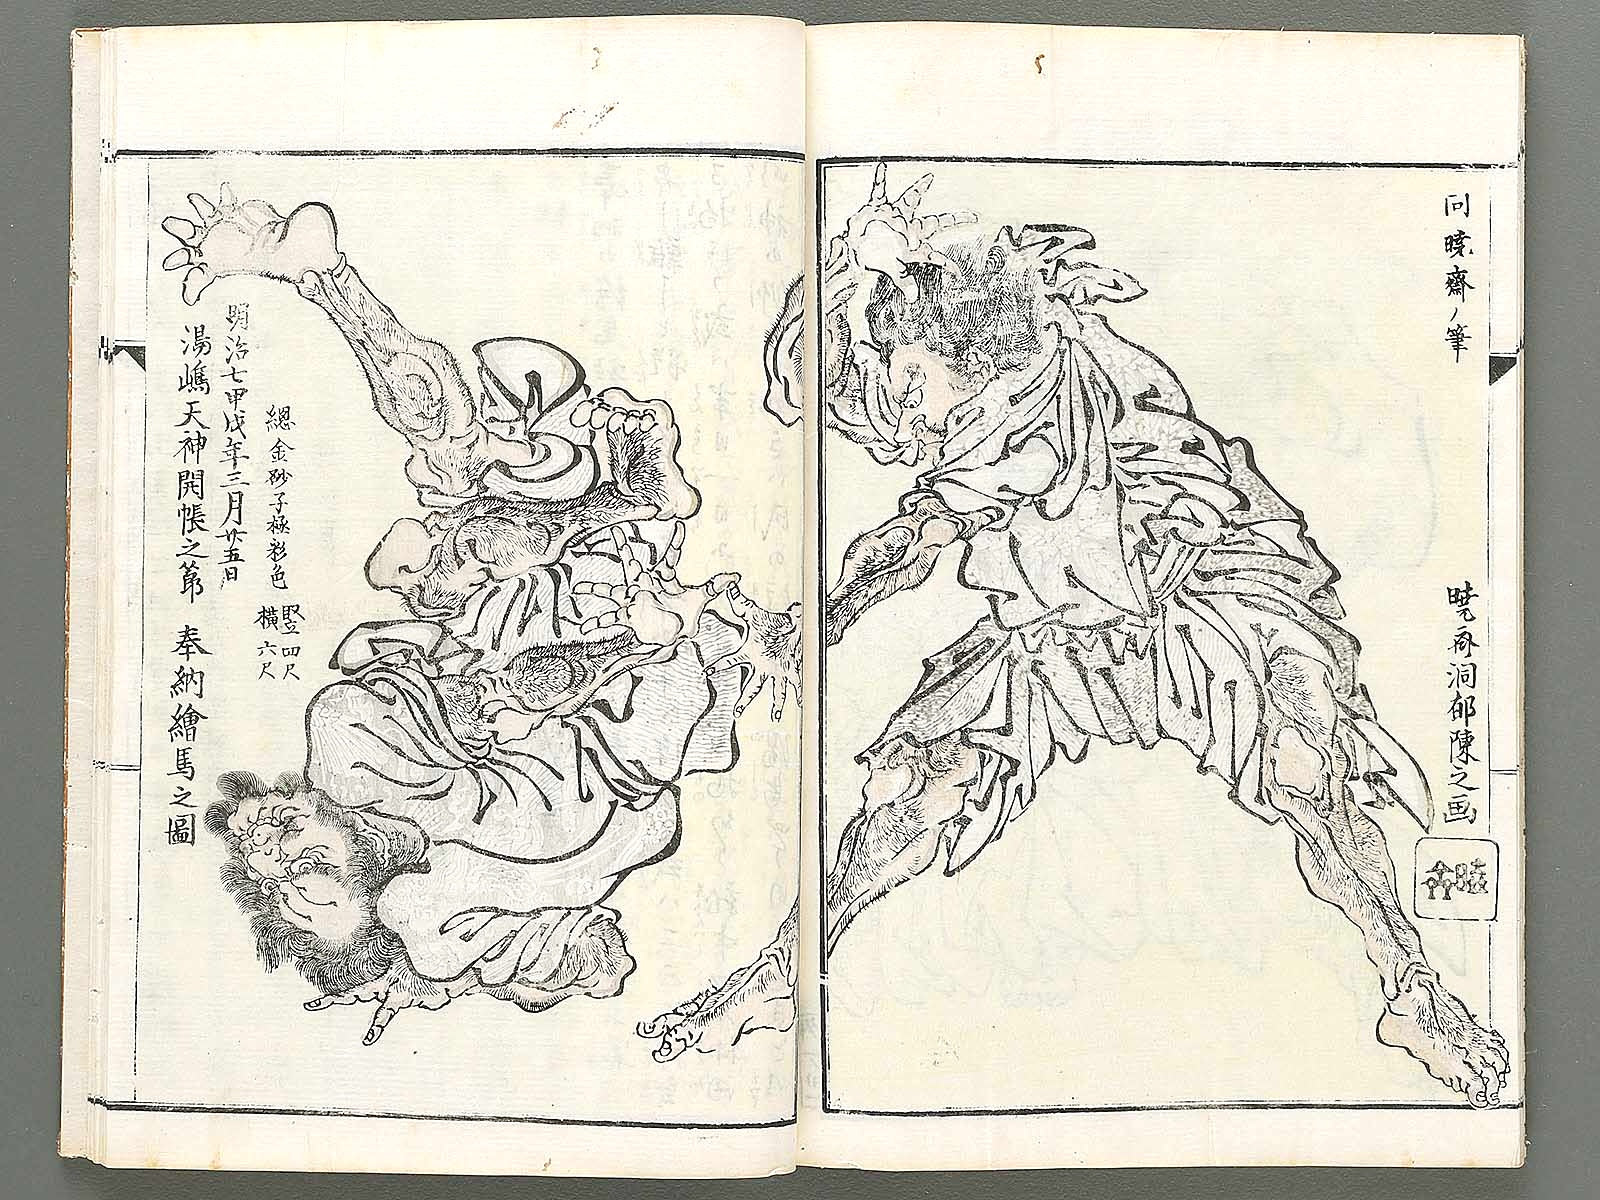 同暁齋ノ筆
暁斎洞郁陳之画
暁斎
總金砂子極彩色
竪四尺
横六尺
明治七甲戌年三月廿五日
湯嶋天神開帳之節 奉納繪馬之圖